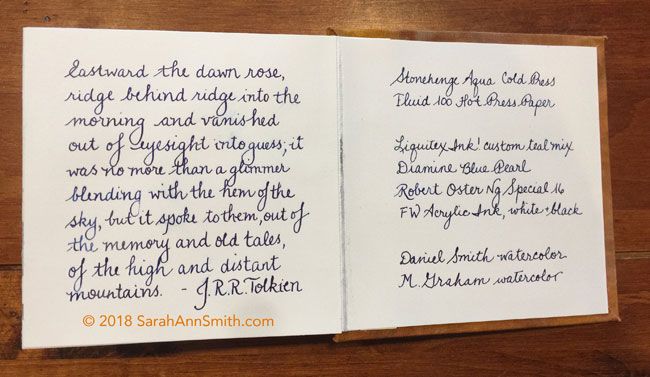 Eastward the dawn rose,
ridge behind ridge into the
morning and vanished
out of eyesight into guess; it
was no more than a glimmer
blending with the hem of the
sky, but it spoke to them, out of
the memory and old tales,
of the high and distant
mountains. - J.R.R. Tolkien
© 2018 SarahAnnSmith.com
Stonehenge Aqua Cold Press
Fluid 100 Hot Press Paper
Liquitex Ink! custom teal mix
Diamine Blue Pearl
Robert Oster Ng Special 16
FW Acrylic Ink, white + black
Daniel Smith watercolor
M. Graham watercolor